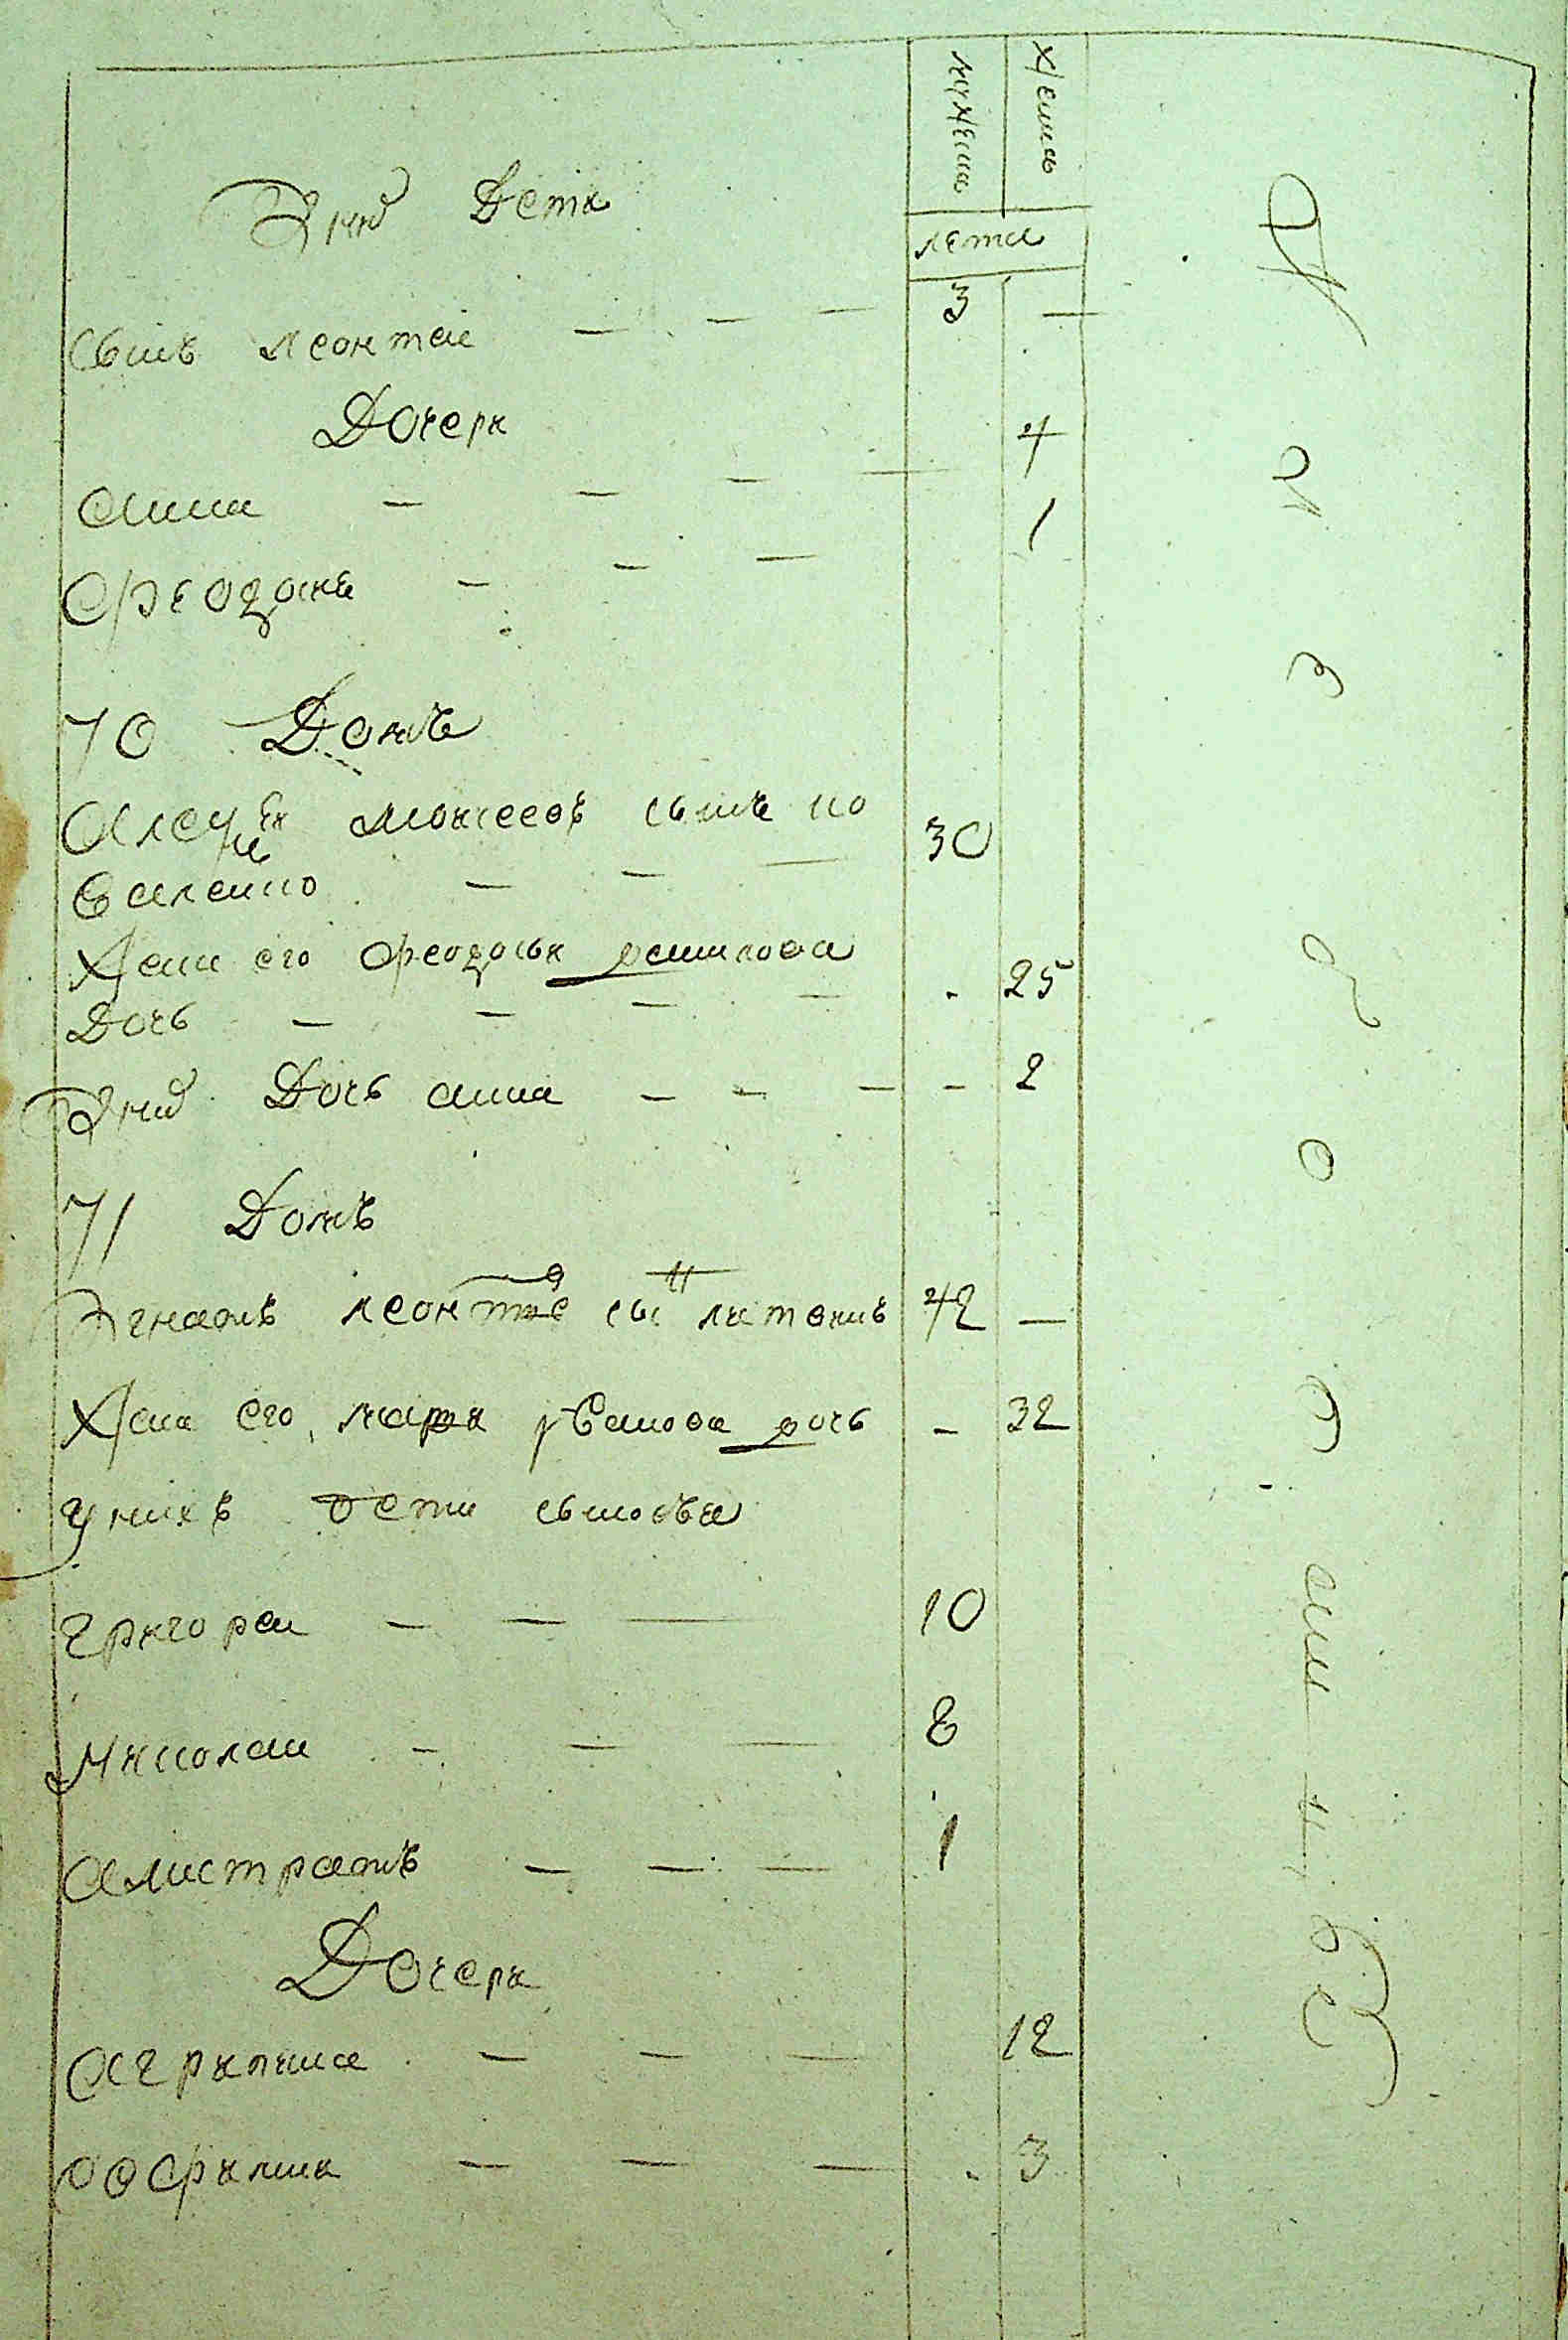 мужеска
женска
лета
Ихъ Дети
Сынъ леонтей — — — 3 —
Дочери
анна — — — — 4
Феодосия — — — 1
70 Домъ
Алексей моисеевъ сынъ ко
валенко — — — 30
Жена его феодосия данилова
Дочь — — — — 25
Ихъ Дочь анна — — — — 2
71 Домъ
Игнатъ леонтиевъ сынъ литвинъ 42 —
Жена его марья иванова дочь — 32
У нихъ дети сыновья
григорей — — — 10
Николай — — — 8
Алистратъ — — — 1
Дочери
Агрипина — — — 12
Евфимия — — — 3